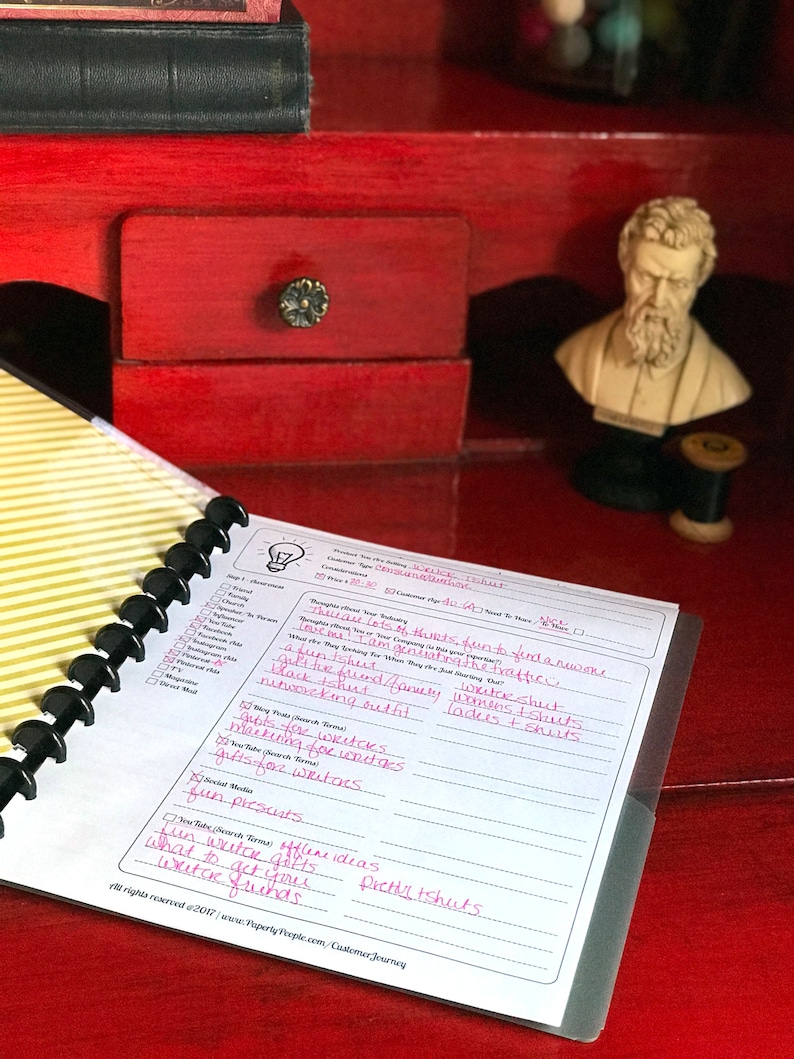 Product You Are Selling writer tshirt
Customer Type consumer/author
Considerations
Price $ 20-30 Customer Age 40-60 Need To Have / Nice To Have
Step 1 - Awareness
Friend
Family
Church
Speaker-In Person
Influencer
YouTube
Facebook
Facebook Ads
Instagram
Instagram Ads
Pinterest
Pinterest Ads
TV
Magazine
Direct Mail
Thoughts About Your Industry
There are lots of tshirts, fun to find a new one
Thoughts About You or Your Company (is this your expertise?)
love me! I am generating the traffic
What Are They Looking For When They Are Just Starting Out?
a fun tshirt
gift for friend/family
black tshirt
networking outfit
writer shirt
womens tshirts
ladies tshirts
Blog Posts (Search Terms)
gifts for writers
marketing for writers
YouTube (Search Terms)
gifts for writers
Social Media
fun presents
YouTube (Search Terms) offline ideas
fun writer gifts
what to get your
writer friends
pretty tshirts
All rights reserved @2017 | www.PaperlyPeople.com/CustomerJourney